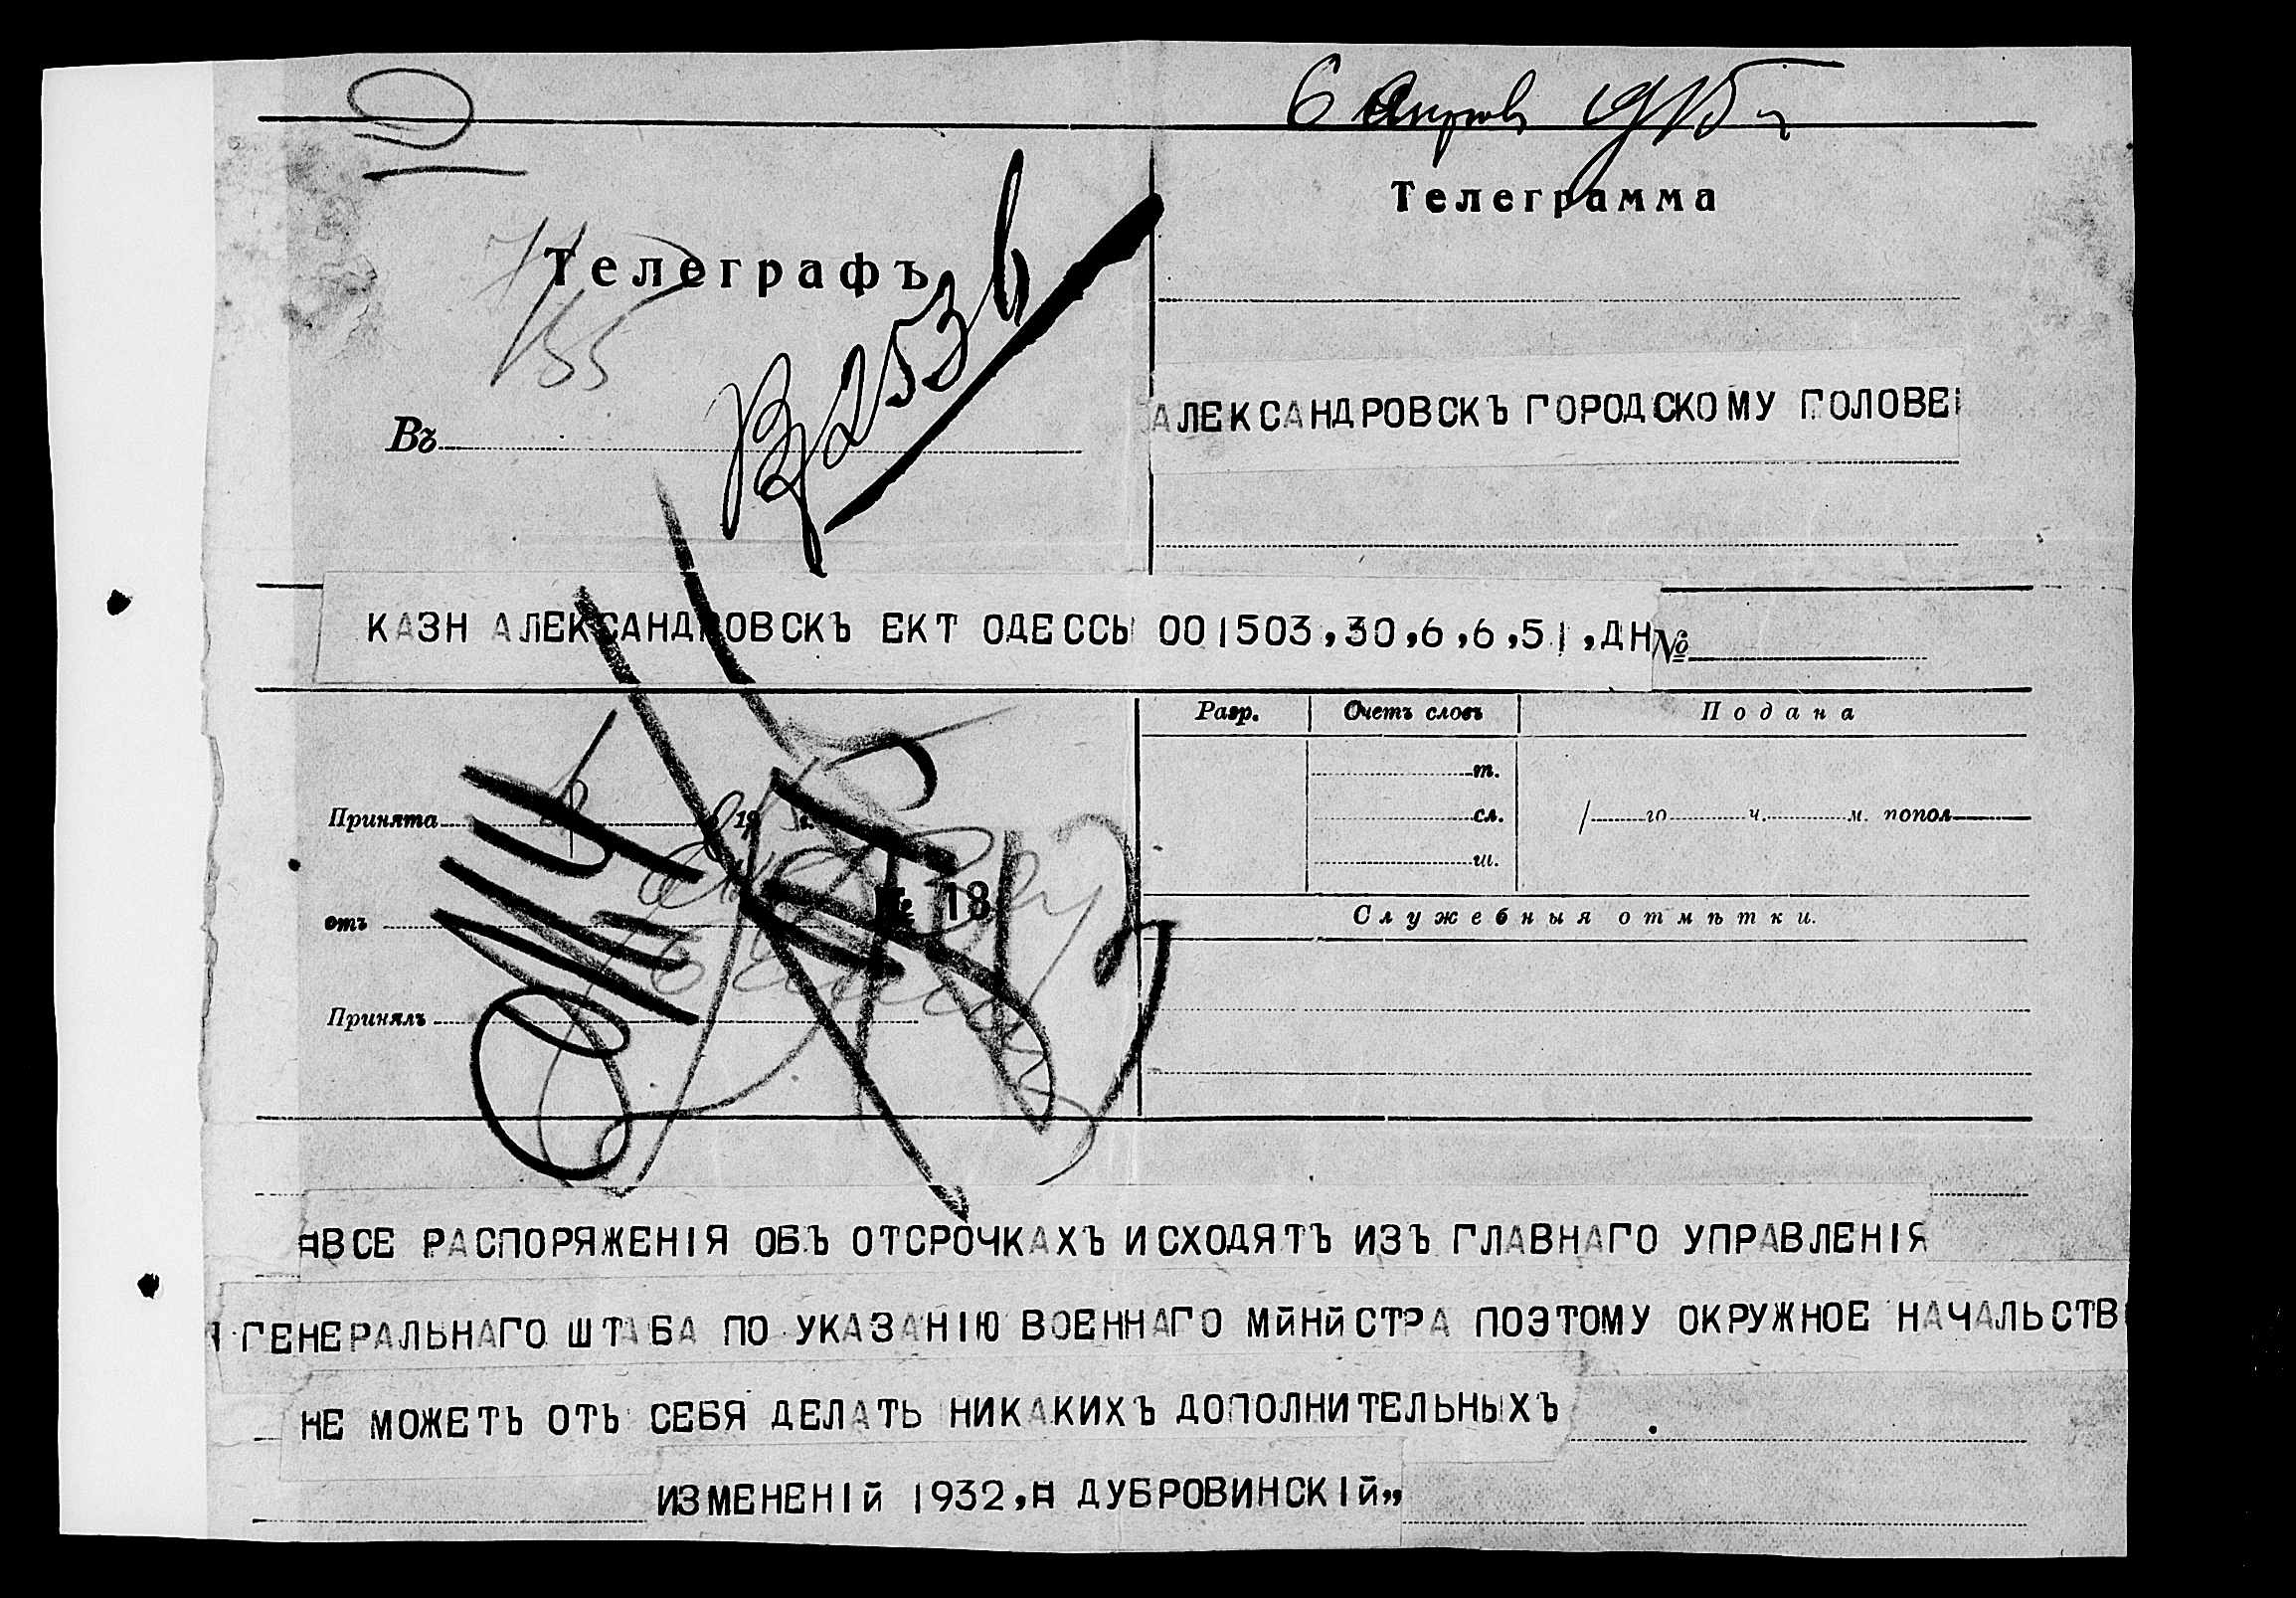 6 Апрѣля 1915 г
Телеграмма
Телеграфъ
Въ
Вх 2536
155
АЛЕКСАНДРОВСКЪ ГОРОДСКОМУ ГОЛОВЕ
КАЗН АЛЕКСАНДРОВСКЪ ЕКТ ОДЕССЫ 001503,30,6,6,51,ДН №
Разр. Счетъ словъ Подана
т.
Принята 19
сл.
го ч. м. попол
ш.
№ 18
отъ
Служебныя отмѣтки.
Принялъ
ВСЕ РАСПОРЯЖЕНІЯ ОБЪ ОТСРОЧКАХЪ ИСХОДЯТЪ ИЗЪ ГЛАВНАГО УПРАВЛЕНІЯ
ГЕНЕРАЛЬНАГО ШТАБА ПО УКАЗАНІЮ ВОЕННАГО МЙНЙСТРА ПОЭТОМУ ОКРУЖНОЕ НАЧАЛЬСТВ
НЕ МОЖЕТЪ ОТЬ СЕБЯ ДЕЛАТЬ НИКАКИХЪ ДОПОЛНИТЕЛЬНЫХЪ
ИЗМЕНЕНІЙ 1932,Н ДУБРОВИНСКІЙ,,